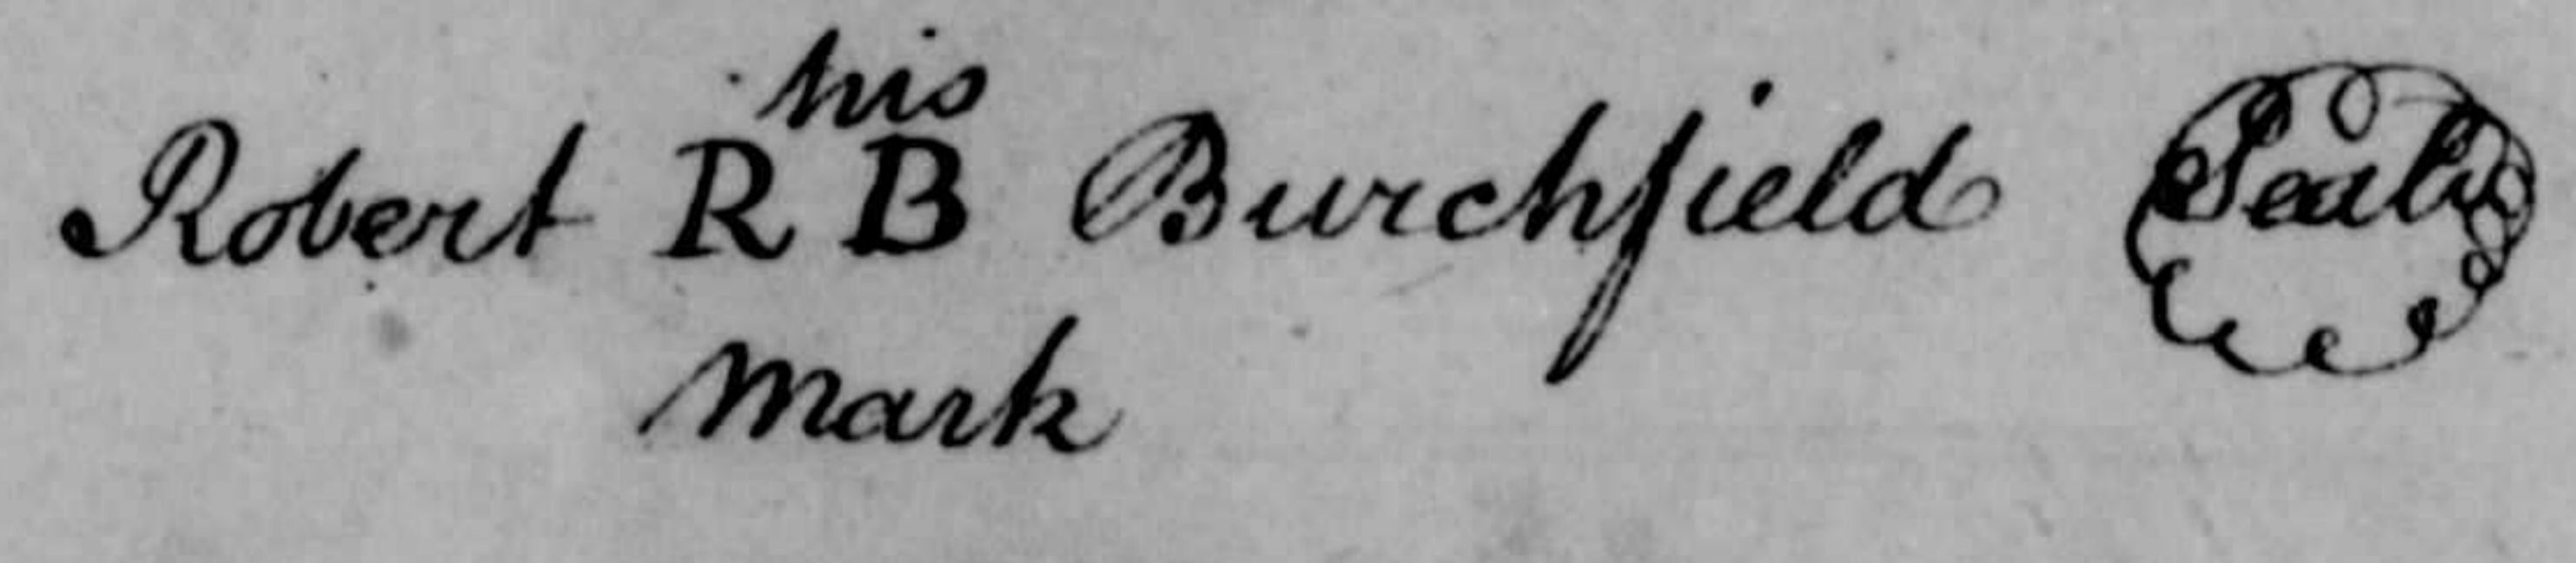 his
Robert R B Burchfield Seal
Mark